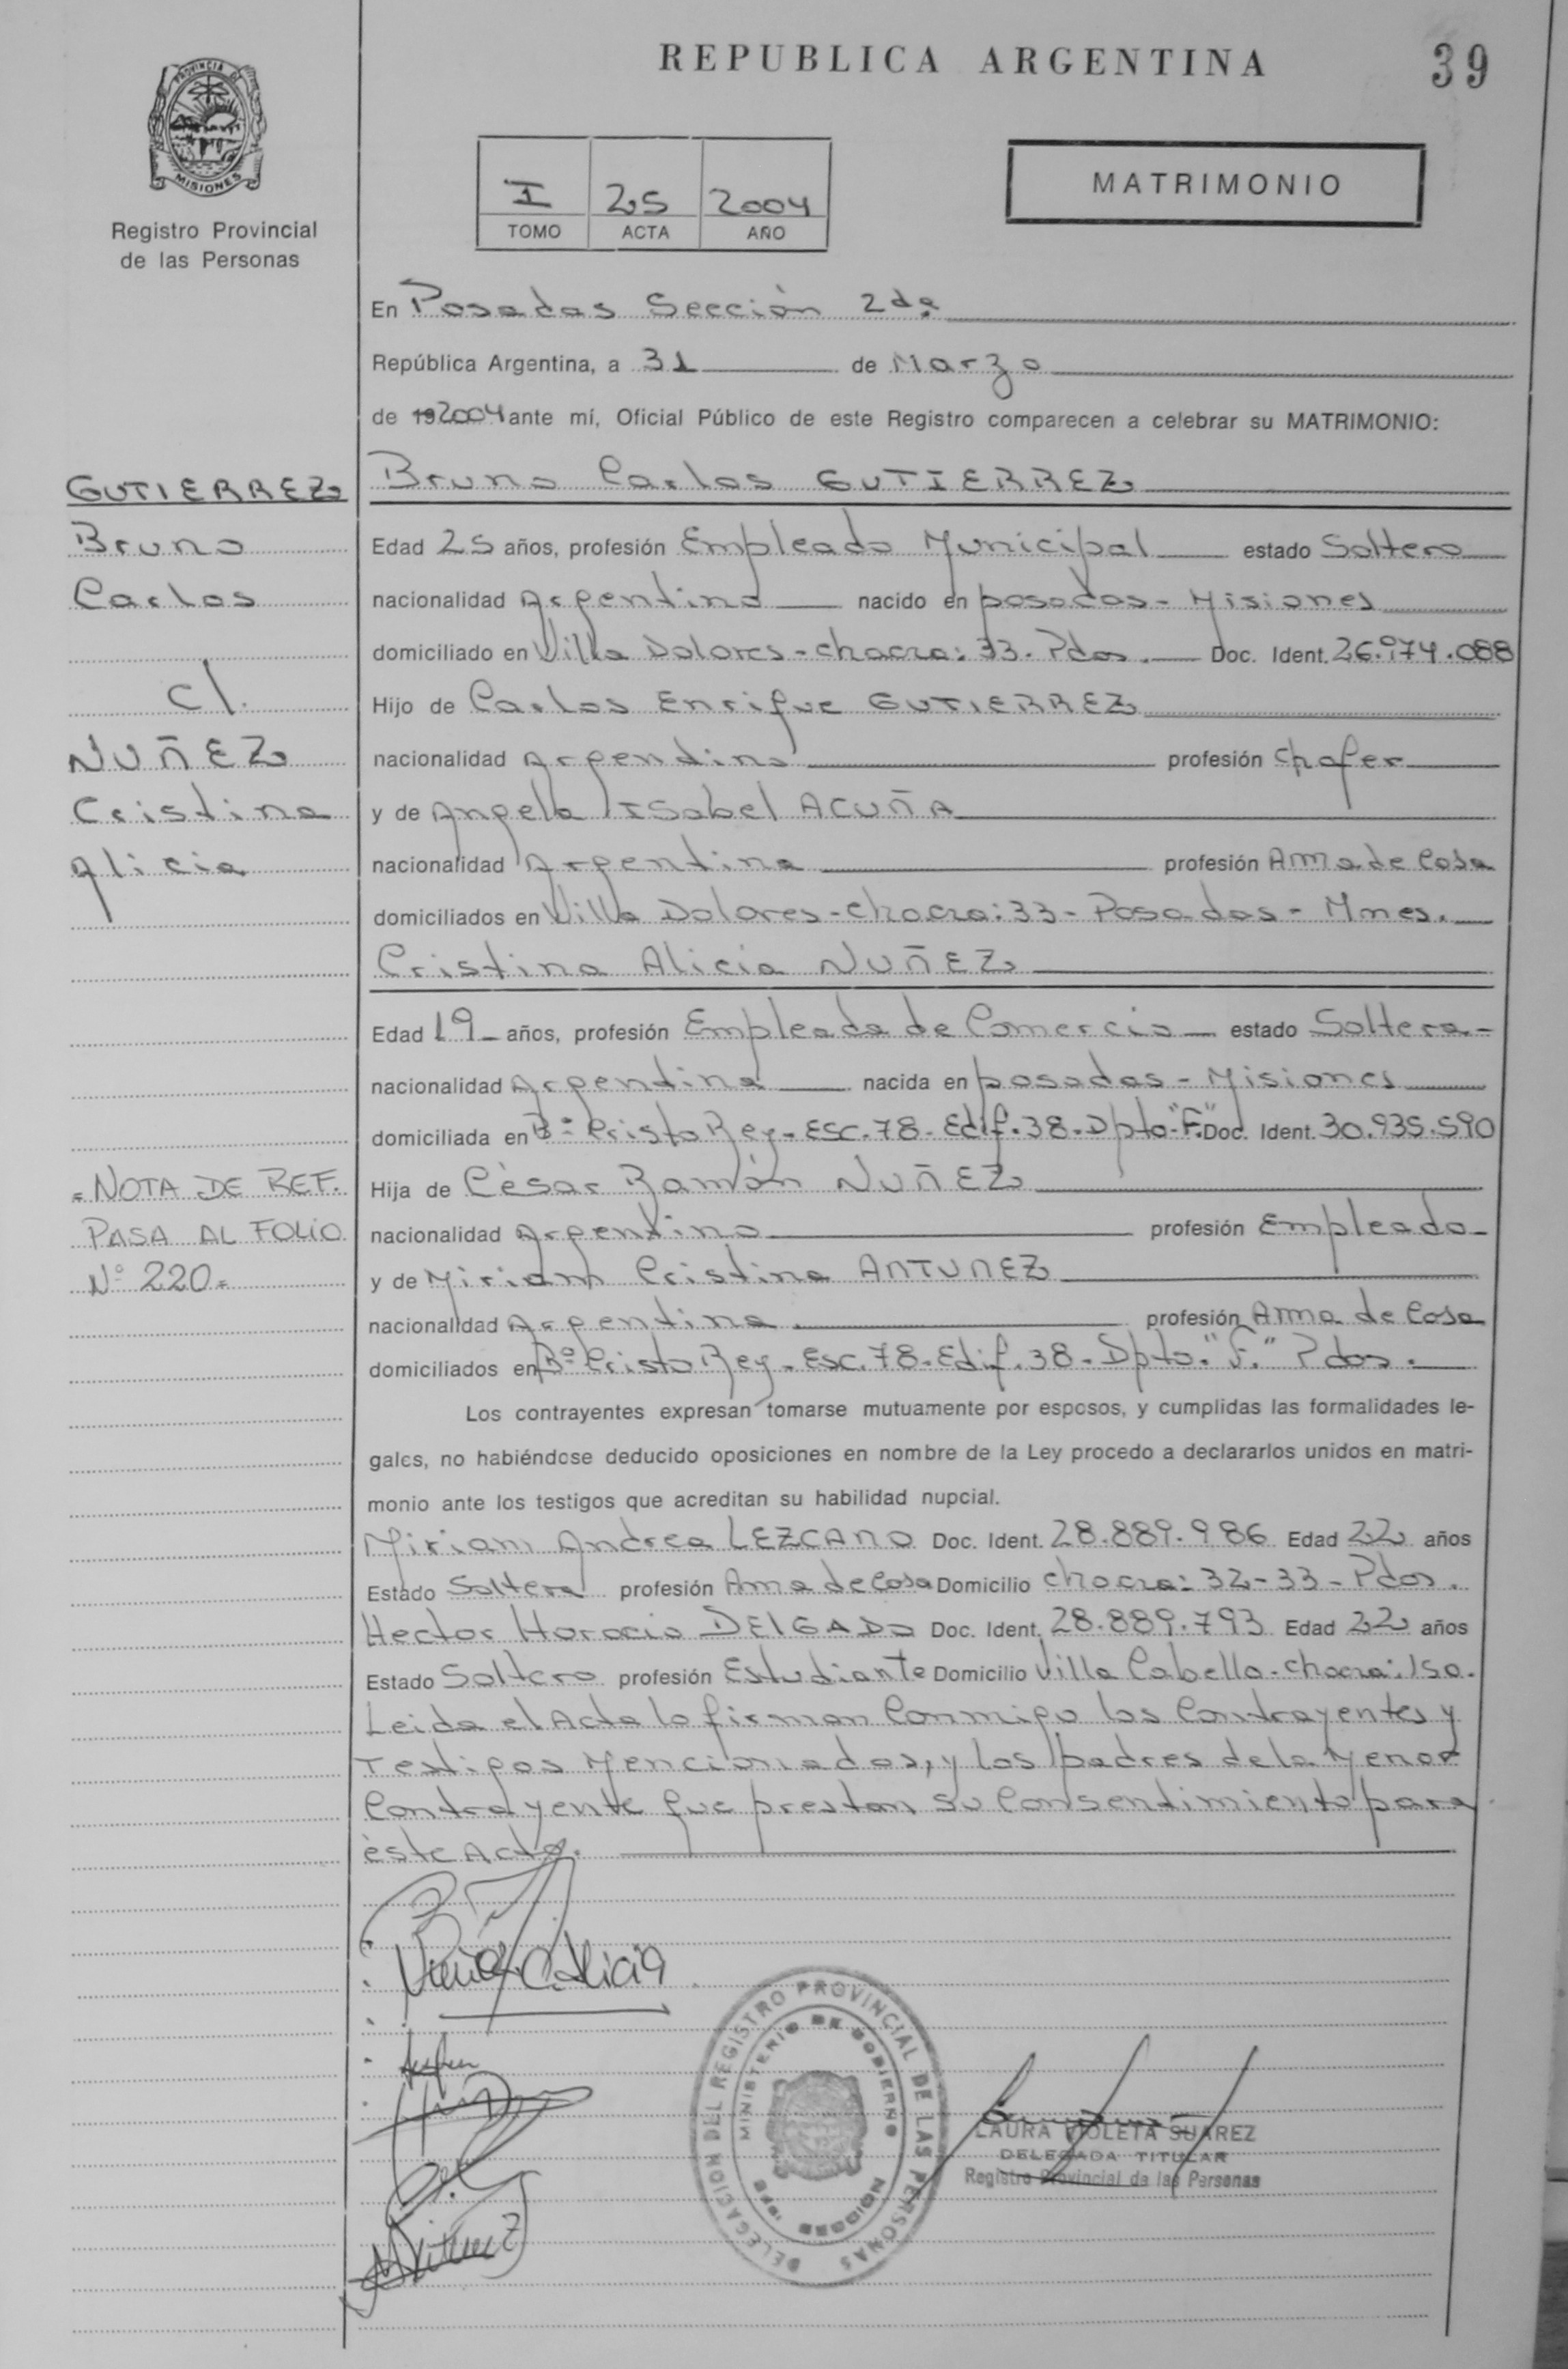 REPUBLICA ARGENTINA
39
PROVINCIA DE
MISIONES
Registro Provincial
de las Personas
I 25 2004
TOMO ACTA AÑO
MATRIMONIO
En Posadas Sección 2da
República Argentina, a 31 de Marzo
de 19 2004 ante mí, Oficial Público de este Registro comparecen a celebrar su MATRIMONIO:
GUTIERREZ
Bruno
Carlos
c/.
NUÑEZ
Cristina
Alicia
= NOTA DE REF.
PASA AL FOLIO
Nº 220=
Bruno Carlos GUTIERREZ
Edad 25 años, profesión Empleado Municipal estado Soltero
nacionalidad Argentina nacido en posadas - Misiones
domiciliado en Villa Dolores - chacra: 33 - Pdas. Doc. Ident. 26.974.088
Hijo de Carlos Enrique GUTIERREZ
nacionalidad Argendina profesión chofer
y de Angela ISabel ACUÑA
nacionalidad Argentina profesión Ama de Casa
domiciliados en Villa Dolores - chacra: 33 - Posadas - Mnes.
Cristina Alicia NUÑEZ
Edad 19 años, profesión Empleada de Comercio estado Soltera-
nacionalidad Argendina nacida en posadas - Misiones
domiciliada en Bº Cristo Rey - ESC. 78 - Edif. 38 - Dpto "F". Doc. Ident. 30.935.590
Hija de Cèsar Ramón NUÑEZ
nacionalidad Argentino profesión Empleado-
y de Miriam Cristina ANTUNEZ
nacionalidad Argentina profesión Ama de Casa
domiciliados en Bº Cristo Rey - Esc. 78 - Edif. 38 - Dpto. "F." Pdas.
Los contrayentes expresan tomarse mutuamente por esposos, y cumplidas las formalidades le-
gales, no habiéndose deducido oposiciones en nombre de la Ley procedo a declararlos unidos en matri-
monio ante los testigos que acreditan su habilidad nupcial.
Miriam Andrea LEZCANO Doc. Ident. 28.889.986 Edad 22 años
Estado Soltera profesión Ama de Casa Domicilio chacra: 32-33 - Pdas.
Hector Horacio DELGADO Doc. Ident. 28.889.793 Edad 22 años
Estado Soltero profesión Estudiante Domicilio Villa Cabello - chacra: 150.
Leida el Acta lo firman Conmigo los Contrayentes y
Testigos Mencionados, y los padres de la Menor
Contrayente que prestan su Consentimiento para
èste Acto.
C. Alicia
DELEGACION DEL REGISTRO PROVINCIAL DE LAS PERSONAS
MINISTERIO DE GOBIERNO
LAURA VIOLETA SUAREZ
DELEGADA TITULAR
Registro Provincial de las Personas